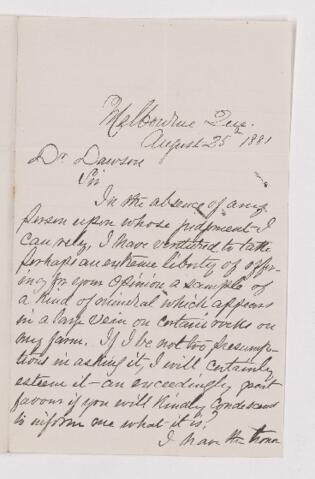 Melbourne Que.
August 25th 1881
Dr Dawson
Sir
In the absence of any
person upon whose judgement I
can rely, I have ventured to take
perhaps an extreme liberty of offer-
ing for your opinion a sample of
a kind of mineral which appears
in a large vein on certain rocks on
my farm. If I be not too presump-
tious in asking it, I will certainly
esteem it an exceedingly great
favour if you will kindly condescend
to inform me what it is?
I have the honor